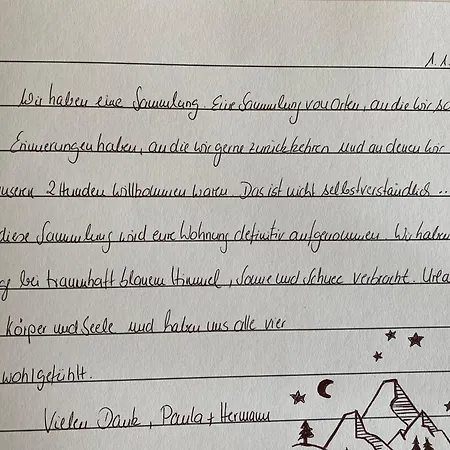 1.1.
Wir haben eine Sammlung. Eine Sammlung von Orten, an die wir
Erinnerungen haben, an die wir gerne zurückkehren und an denen wir
unseren 2 Hunden willkommen waren. Das ist nicht selbstverständlich ...
diese Sammlung wird eure Wohnung definitiv aufgenommen. Wir haben
bei traumhaft blauem Himmel, Sonne und Schnee verbracht.
Körper und Seele und haben uns alle vier
wohlgefühlt.
Vielen Dank, Paula + Hermann